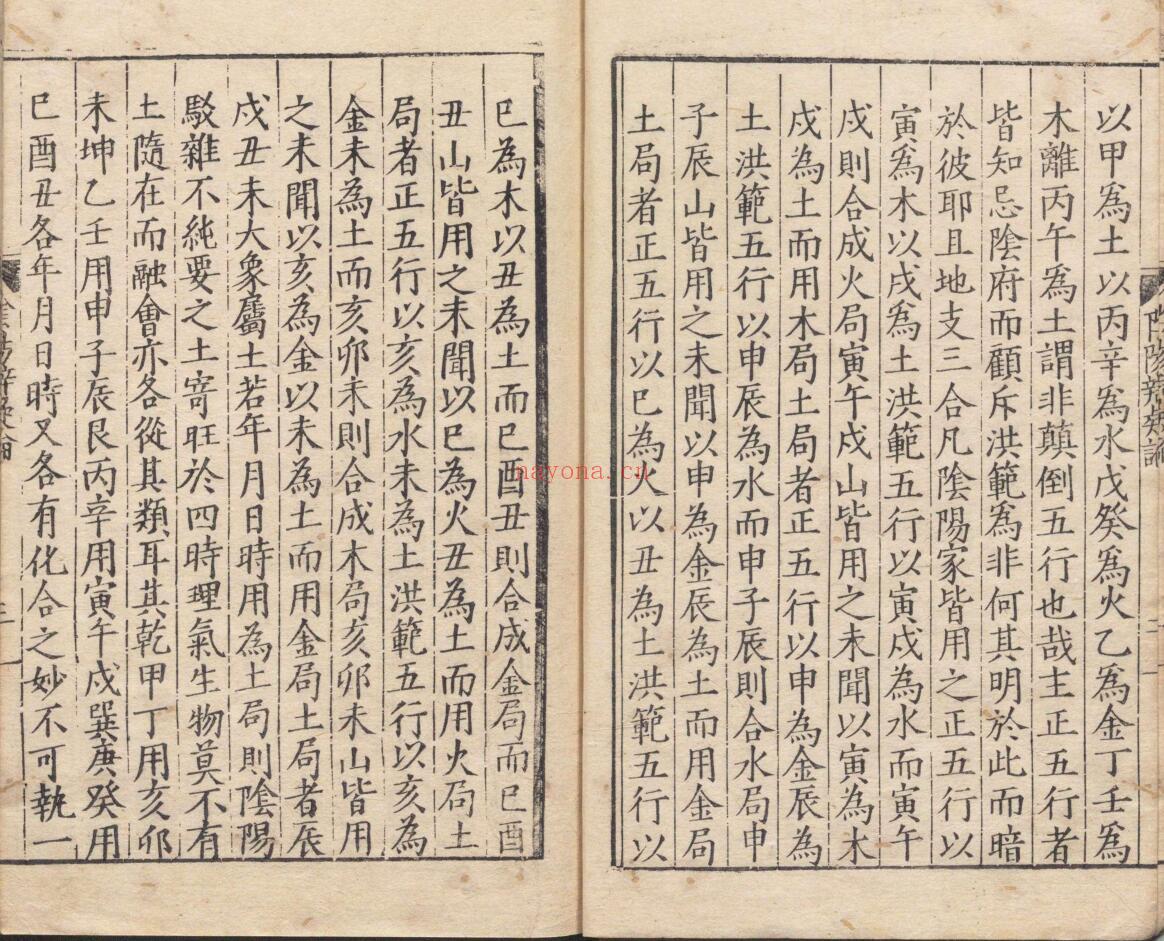 以甲爲土以丙辛爲水戊癸爲火乙爲金丁壬爲
木離丙午爲土謂非顛倒五行也哉主正五行者
皆知忌陰府而顧斥洪範爲非何其明於此而暗
於彼耶且地支三合凡陰陽家皆用之正五行以
寅爲木以戌爲土洪範五行以寅戌為水而寅午
戌則合成火局寅午戌山皆用之未聞以寅為木
戌為土而用木局土局者正五行以申為金辰為
土洪範五行以申辰為水而申子辰則合水局申
子辰山皆用之未聞以申為金辰為土而用金局
土局者正五行以巳為火以丑為土洪範五行以
巳為木以丑為土而巳酉丑則合成金局而巳酉
丑山皆用之未聞以巳為火丑為土而用火局土
局者正五行以亥為水未為土洪範五行以亥為
金未為土而亥卯未則合成木局亥卯未山皆用
之未聞以亥為金以未為土而用金局土局者辰
戌丑未大象屬土若年月日時用為土局則陰陽
駁雜不純要之土寄旺於四時理氣生物莫不有
土隨在而融會亦各從其類耳其乾甲丁用亥卯
未坤乙壬用申子辰艮丙辛用寅午戌巽庚癸用
巳酉丑各年月日時又各有化合之妙不可執一
nayona.cn